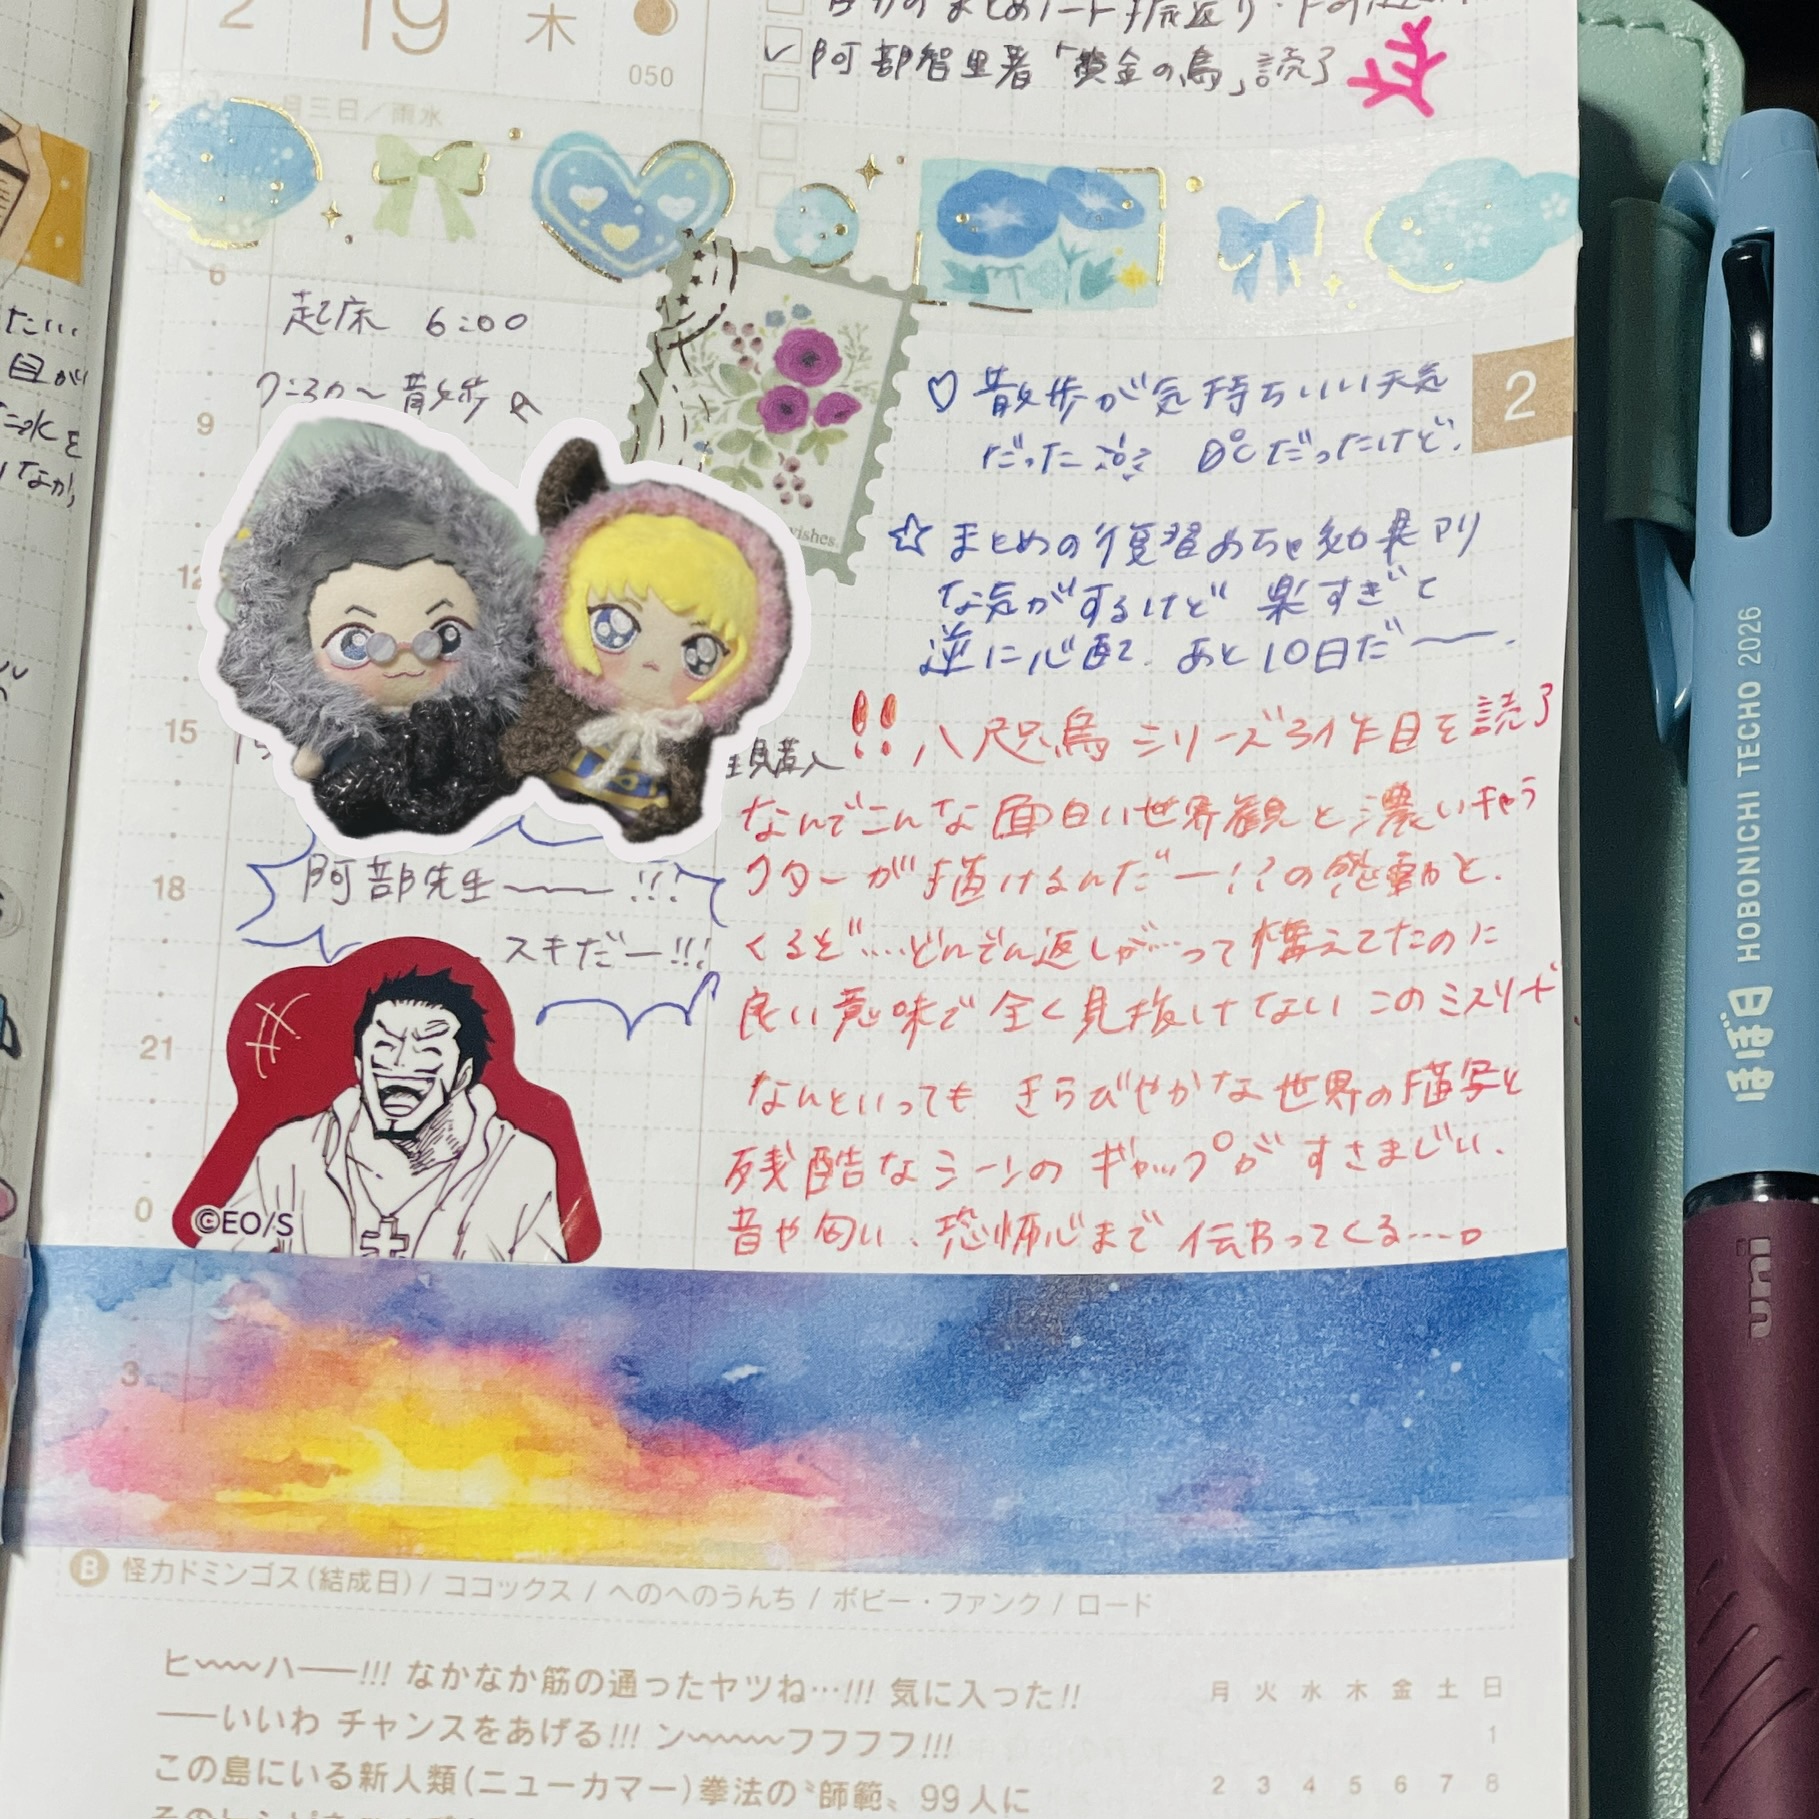 2 19 木
050
✓ 阿部智里著「黄金の烏」読了
月三日/雨水
6
起床 6:00
散歩
9
12
15
18
21
0
3
wishes.
2
♡ 散歩が気持ちいい天気
だった 0℃だったけど.
☆ まとめの復習めちゃ効果アリ
な気がするけど 楽すぎて
逆に心配. あと10日だー.
!! 八咫烏シリーズ3作目を読了
なんでこんな面白い世界観と濃いキャラ
クターが描けるんだー!?の感動と.
くるぞ…どんでん返しが…って構えてたのに
良い意味で全く見抜けてないこのミステリー
なんといっても きらびやかな世界の描写と
残酷なシーンの ギャップがすさまじい.
音や匂い、恐怖心まで伝わってくる…。
阿部先生――!!!
スキだー!!!
©EO/S
B 怪力ドミンゴス(結成日)/ ココックス / へのへのうんち / ボビー・ファンク / ロード
ヒ〜〜〜ハ――!!! なかなか筋の通ったヤツね…!!! 気に入った!!
――いいわ チャンスをあげる!!! ン〜〜〜〜フフフフ!!!
この島にいる新人類(ニューカマー)拳法の〝師範〟99人に
月 火 水 木 金 土 日
1
2 3 4 5 6 7 8
ほぼ日 HOBONICHI TECHO 2026
uni